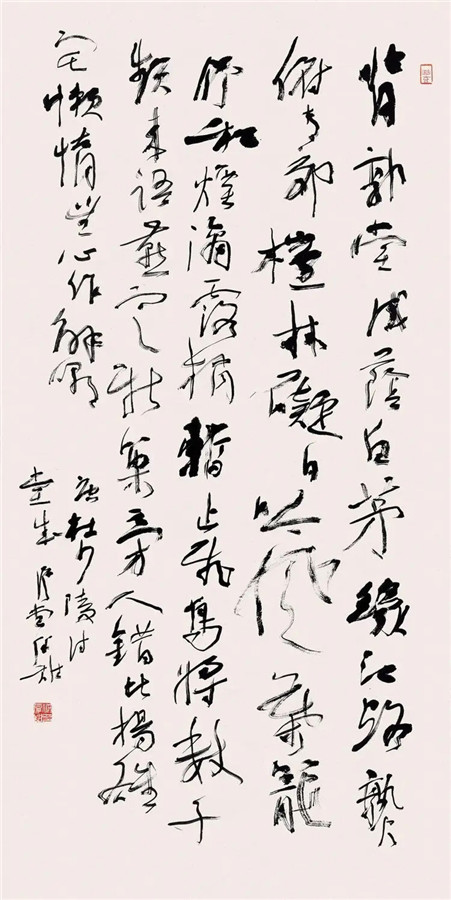 背郭堂成蔭白茅緣江路熟
俯青郊榿林礙日吟風葉籠
竹和煙滴露梢暫止飛烏將數子
頻來語燕定新巢旁人錯比揚雄
宅懶惰無心作解嘲
唐杜少陵詩
堂成